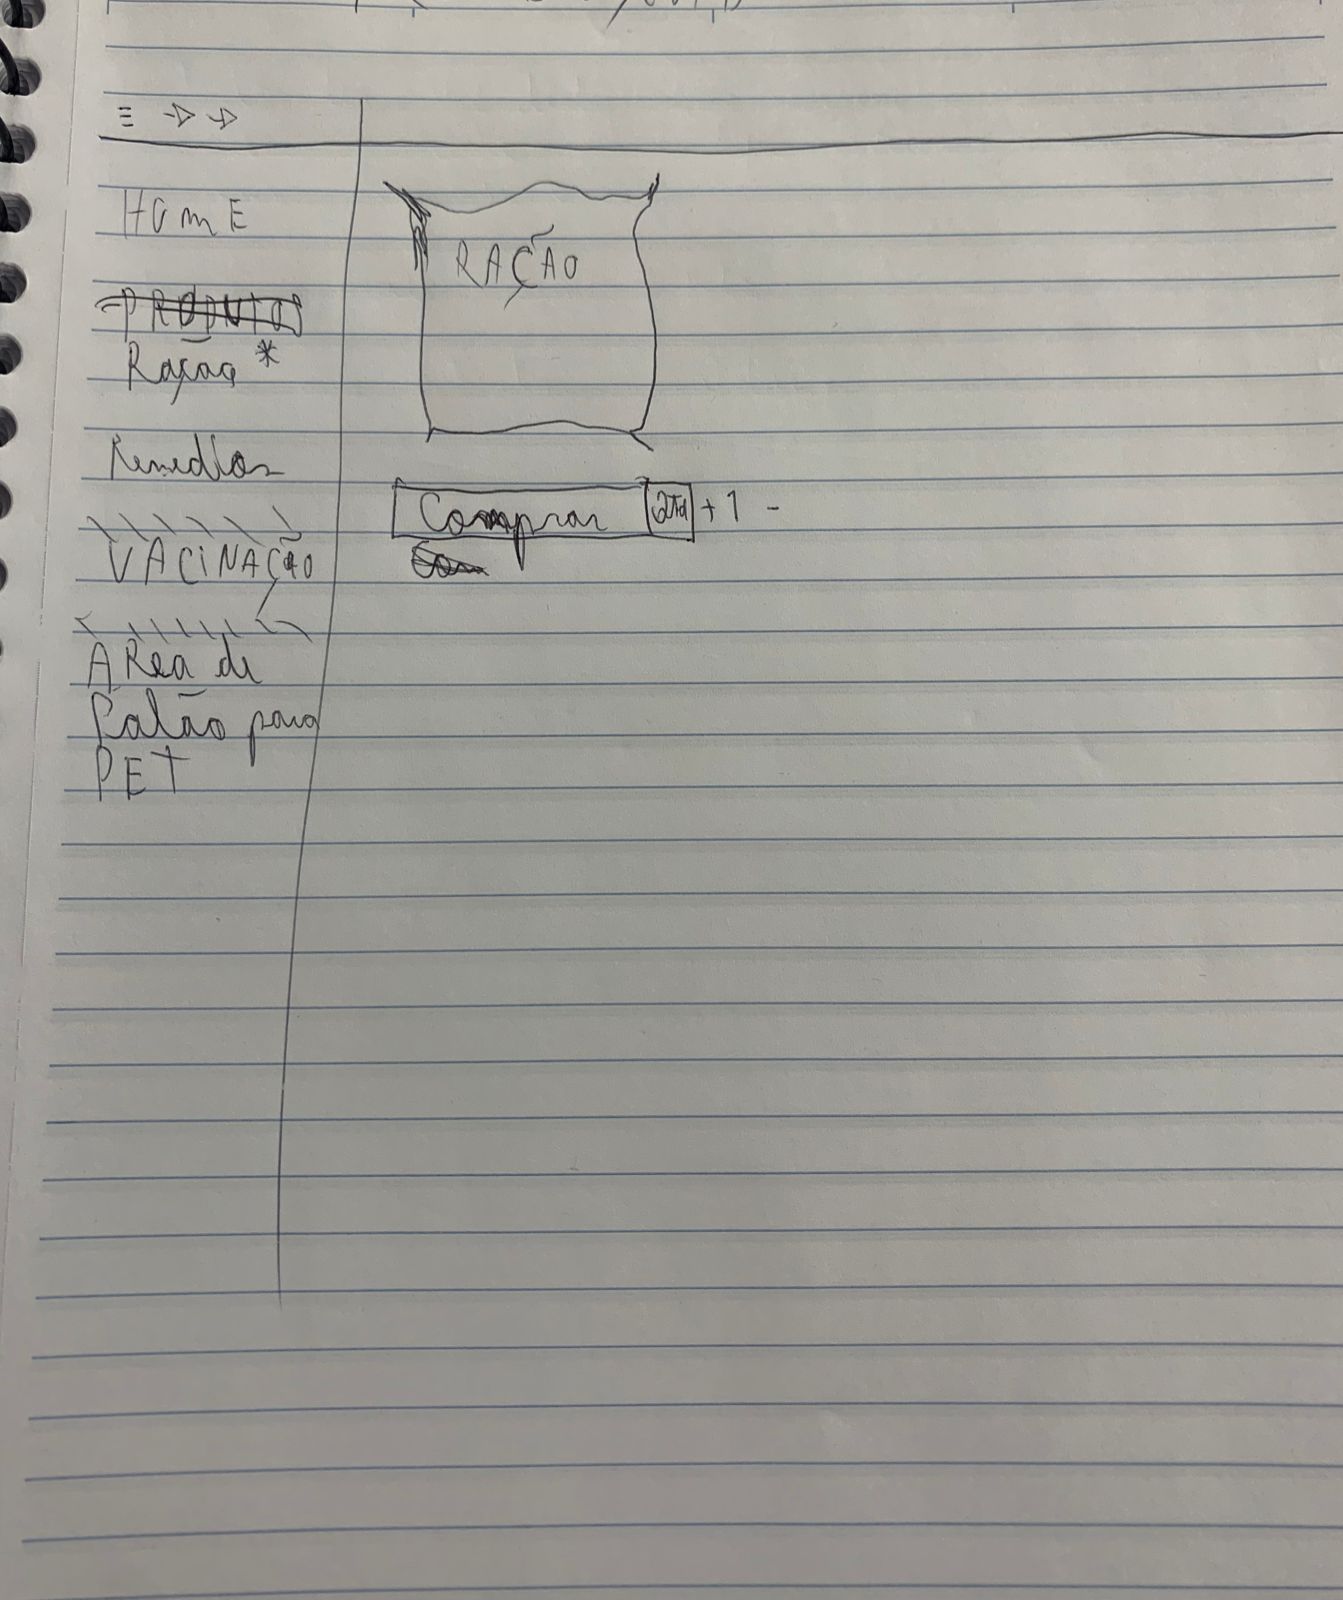 HOME
Ração *
Remedios
VACINAÇÃO
ARea de
Salão para
PET
RAÇÃO
Comprar QTD + 1 -